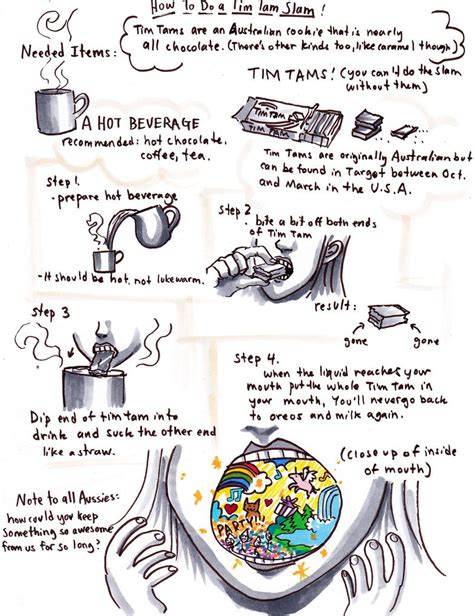 How To Do a Tim Tam Slam!
Tim Tams are an Australian cookie that is nearly
all chocolate. (There's other kinds too, like caramel though)
Needed Items:
TIM TAMS! (you can't do the slam
without them)
Tim Tam
TIM TAM
A HOT BEVERAGE
recommended: hot chocolate,
coffee, tea.
Tim Tams are originally Australian but
can be found in Target between Oct.
and March in the U.S.A.
Step 1.
- prepare hot beverage
- It should be hot, not lukewarm.
Step 2
- bite a bit off both ends
of Tim Tam
result:
gone
gone
Step 3
Dip end of tim tam into
drink and suck the other end
like a straw.
Step 4.
When the liquid reaches your
mouth put the whole Tim Tam in
your mouth, You'll never go back
to oreos and milk again.
(Close up of inside
of mouth)
PARTY
Note to all Aussies:
how could you keep
something so awesome
from us for so long?